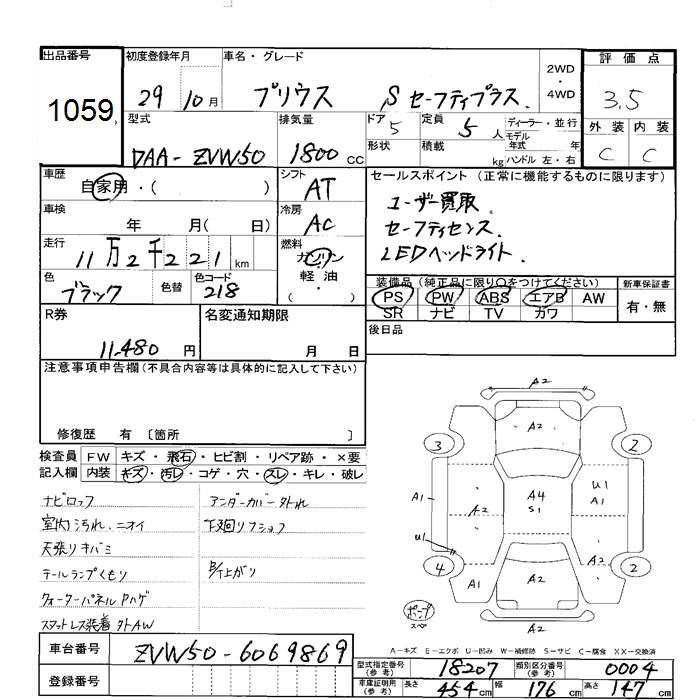 出品番号
1059
初度登録年月
29 10月
車名・グレード
プリウス S セーフティプラス.
2WD
・
4WD
評価点
3.5
外装 内装
C C
型式
DAA-ZVW50
排気量
1800 cc
ドア 5
形状
定員 5人
積載 kg
ディーラー・並行
モデル
年式 年
ハンドル 左・右
車歴
自家用・( )
シフト
AT
セールスポイント (正常に機能するものに限ります)
ユーザー買取.
セーフティセンス.
LEDヘッドライト.
車検
年 月( 日)
冷房
AC
走行
11万2千221 km
燃料
ガソリン
・
軽油
・
( )
色
ブラック
色替
色コード
218
装備品(純正品に限り○をつけてください)
PS PW ABS エアB AW
SR ナビ TV カワ
新車保証書
有・無
R券
11,480 円
名変通知期限
月 日
後日品
注意事項申告欄(不具合内容等は具体的に記入して下さい)
修復歴 有 〔箇所 〕
検査員
記入欄
FW キズ・飛石・ヒビ割・リペア跡・×要
内装 キズ・汚レ・コゲ・穴・スレ・キレ・破レ
ナビロック
室内汚れ、ニオイ
天張りキバミ
テールランプくもり
クォーターパネルPハゲ
スマットレス装着 外AW
アンダーカバー外れ
下廻りフショク
上がり
A2
3
2
A2
A1
A2
A4
S1
U1
A1
U1
4
A1
A2
A2
2
ポンプ
スペ
A2
A-キズ E-エクボ U-凹み W-補修跡 S-サビ C-腐食 XX-交換済
車台番号
ZVW50-6069869
登録番号
型式指定番号
(参考)
18207
類別区分番号
(参考)
0004
車庫証明用
(参考)
長さ 454 cm 幅 176 cm 高さ 147 cm